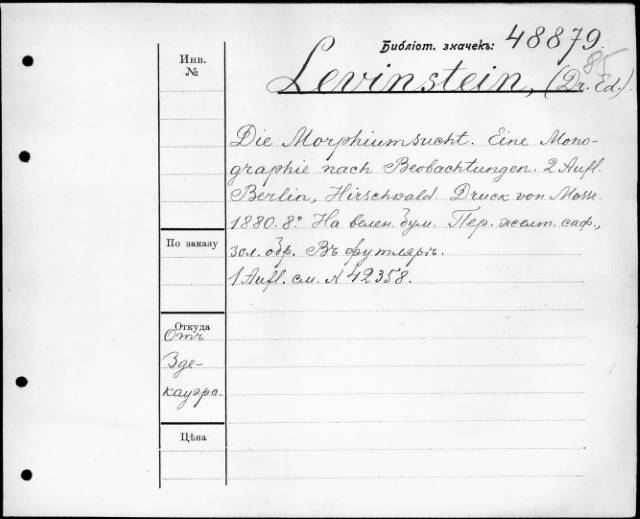 Библіот. значекъ: 48879.
85
Инв.
№
Levinstein, (Dr. Ed.).
Die Morphiumsucht. Eine Mono-
graphie nach Beobachtungen. 2 Aufl.
Berlin, Hirschwald. Druck von Mosse.
1880. 8º. На велен. бум. Пер. желт. саф.,
зол. обр. Въ футлярѣ.
1 Aufl. см. N 42358.
По заказу
Откуда
Отъ
Зде-
каура.
Цѣна